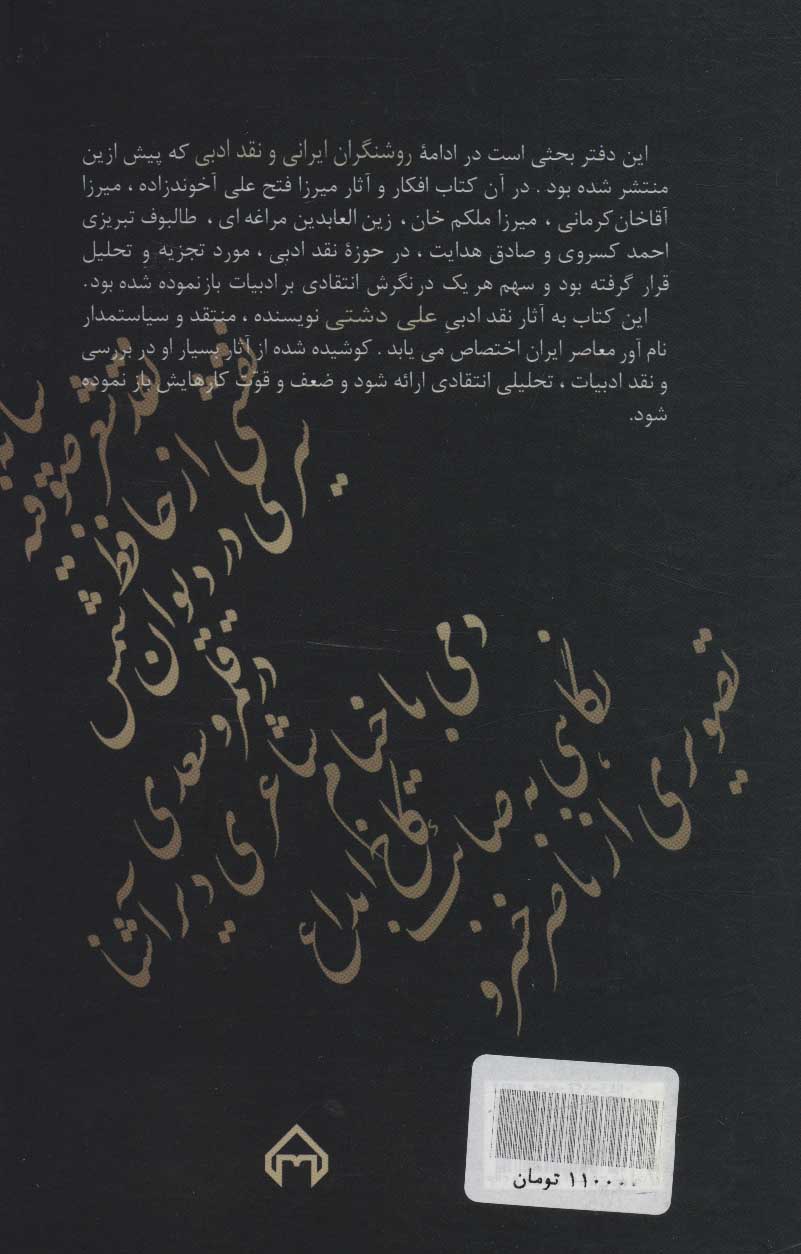 این دفتر بحثی است در ادامهٔ روشنگران ایرانی و نقد ادبی که پیش ازین
منتشر شده بود . در آن کتاب افکار و آثار میرزا فتح علی آخوندزاده ، میرزا
آقاخان کرمانی ، میرزا ملکم خان ، زین العابدین مراغه ای ، طالبوف تبریزی
احمد کسروی و صادق هدایت ، در حوزهٔ نقد ادبی ، مورد تجزیه و تحلیل
قرار گرفته بود و سهم هر یک در نگرش انتقادی بر ادبیات بازنموده شده بود.
این کتاب به آثار نقد ادبی علی دشتی نویسنده ، منتقد و سیاستمدار
نام آور معاصر ایران اختصاص می یابد . کوشیده شده از آثار بسیار او در بررسی
و نقد ادبیات ، تحلیلی انتقادی ارائه شود و ضعف و قوّت کارهایش باز نموده
شود.
سایه
نقد شعر صوفیه
نقشی از حافظ
سیری در دیوان شمس
در قلمرو سعدی
شاعری دیر آشنا
دمی با خیام
کاخ ابداع
نگاهی به صائب
تصویری از ناصر خسرو
۱۱۰۰۰۰ تومان